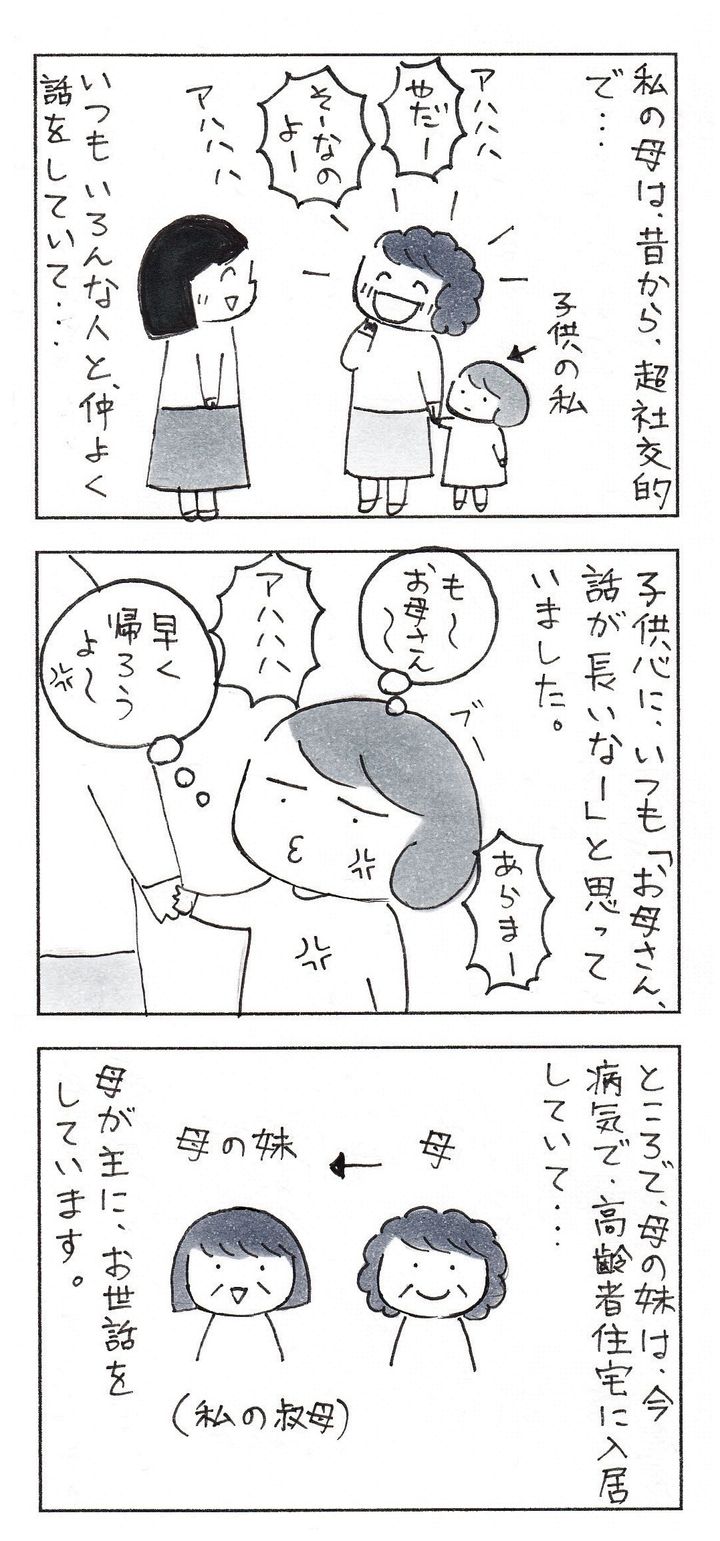 私の母は、昔から、超社交的
で・・・
アハハハ
やだー
そーなの
よー
アハハハ
子供の私
いつもいろんな人と、仲よく
話をしていて・・・
子供心に、いつも「お母さん、
話が長いなー」と思って
いました。
も〜
お母さん
〜
ブー
アハハハ
早く
帰ろう
よ〜
あらまー
ところで、母の妹は、今
病気で、高齢者住宅に入居
していて・・・
母
母の妹
(私の叔母)
母が主に、お世話を
しています。